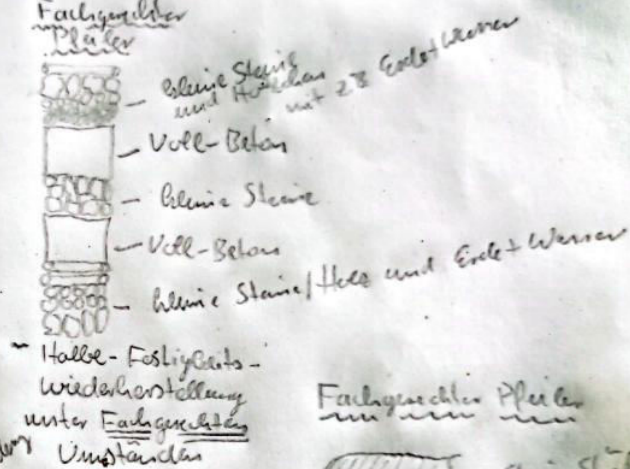 Fachgerechter
Pfeiler
kleine Steine
und Hölzchen mit z.B Erde + Wasser
Voll-Beton
kleine Steine
Voll-Beton
kleine Steine/Holz und Erde + Wasser
- Halbe-Festigkeits-
wiederherstellung
unter Fachgerechten
Umständen
Fachgerechter Pfeiler